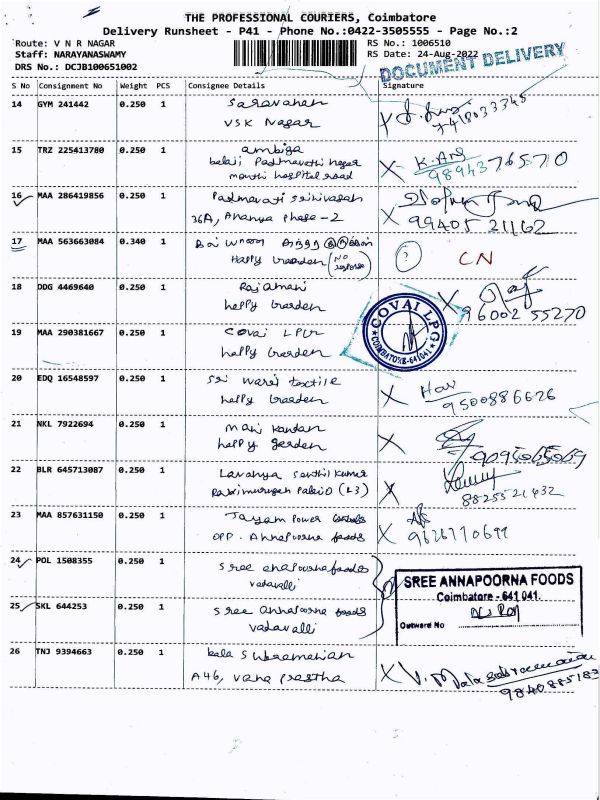 THE PROFESSIONAL COURIERS, Coimbatore
Delivery Runsheet - P41 - Phone No.:0422-3505555 - Page No.:2
Route: V N R NAGAR
RS No.: 1006510
Staff: NARAYANASWAMY
RS Date: 24-Aug-2022
DRS No.: DCJB100651002
DOCUMENT DELIVERY
S No Consignment No Weight PCS Consignee Details Signature
14 GYM 241442 0.250 1 Saravanan
VSK Nagar
7418033345
15 TRZ 225413780 0.250 1 ambiga
balaji Padmavathi nagar
hospital road
9894376570
16 MAA 286419856 0.250 1 Padmavati Srinivasan
36A, Ananya Phase-2
99405 21162
17 MAA 563663084 0.340 1
Happy Garden (No response)
? CN
18 DDG 4469640 0.250 1 Rajamani
happy Garden
96002 55270
19 MAA 290381667 0.250 1 Covai LPG
happy Garden
COVAI LPG
COIMBATORE-641041
20 EDQ 16548597 0.250 1 Sri textile
happy Garden
9500886626
21 NKL 7922694 0.250 1 Mani kandan
happy garden
9095065069
22 BLR 645713087 0.250 1 Lavanya Senthil Kumar
(L3)
8825521432
23 MAA 857631150 0.250 1 Jayam Power
OPP. Annapoorna foods
9626110699
24 POL 1508355 0.250 1 Sree annapoorna foods
vadavalli
SREE ANNAPOORNA FOODS
Coimbatore - 641 041.
Outward No
25 SKL 644253 0.250 1 Sree annapoorna foods
vadavalli
26 TNJ 9394663 0.250 1 bala Subramanian
A46, vana prastha
V. M Balasubramanian
9840885183